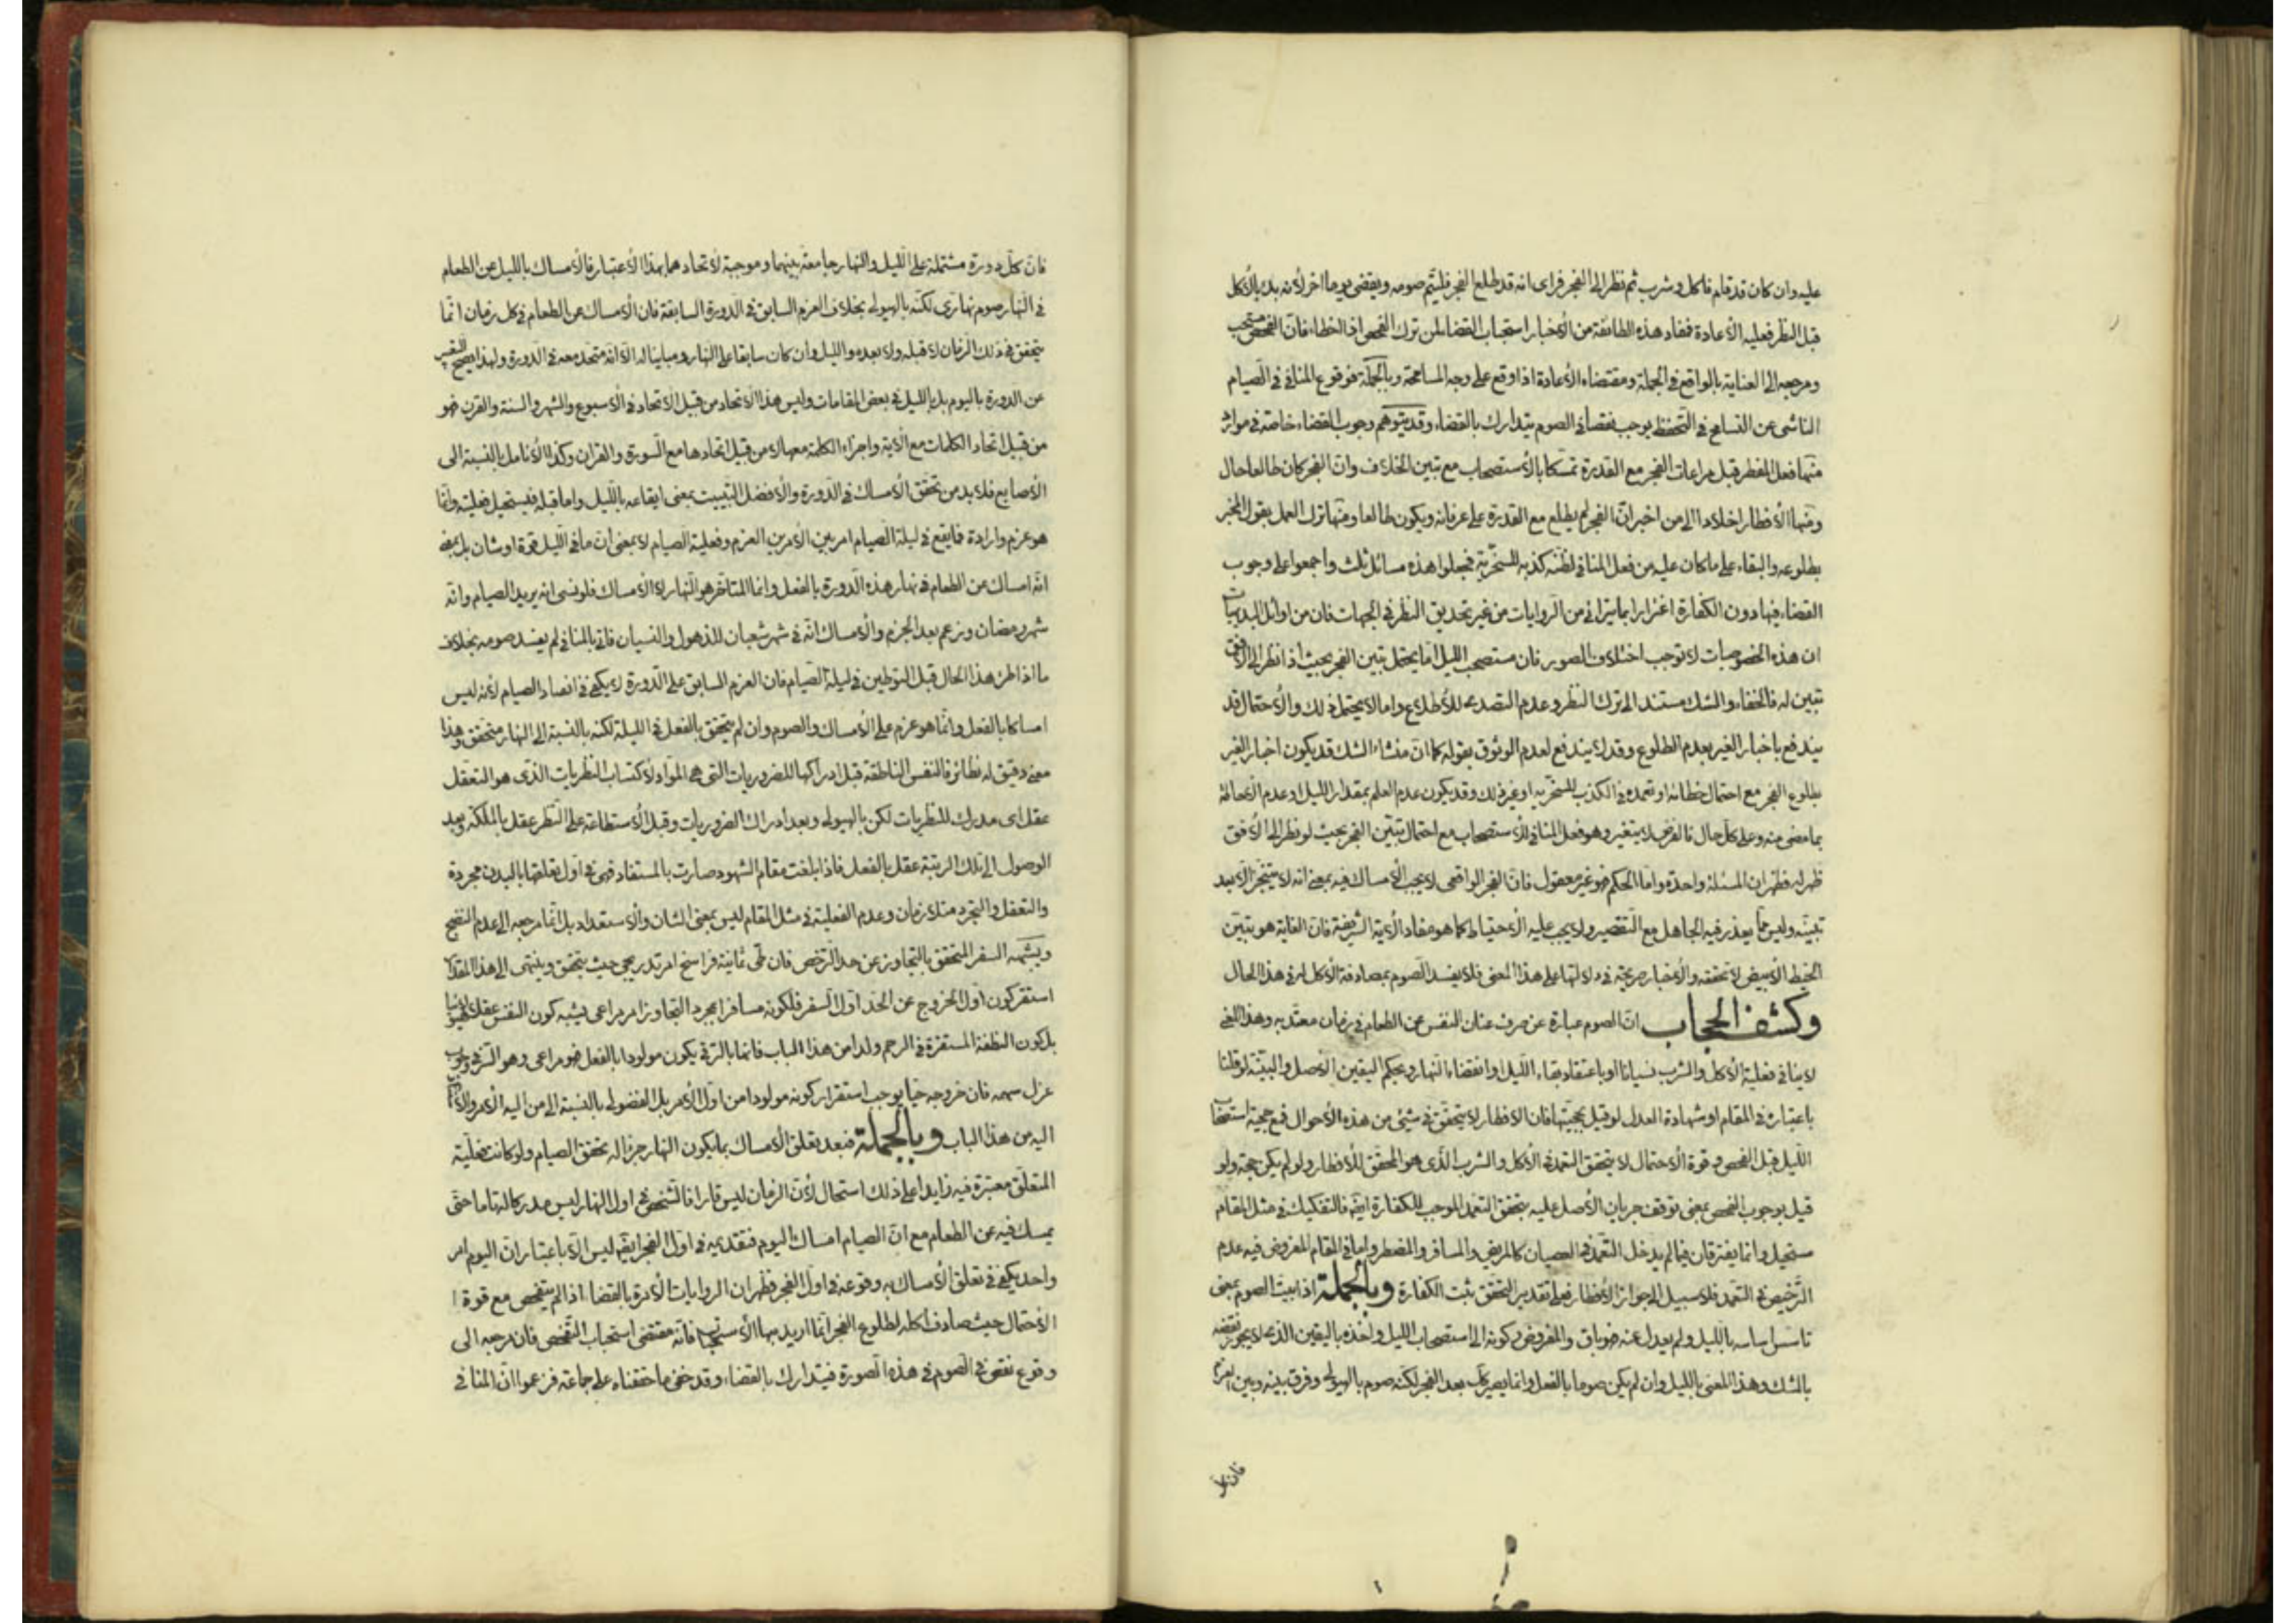 عليه وان كان قد قام فاكل وشرب ثم نظر الى الفجر فراى انه قد طلع الفجر فليتم صومه ويقضى يوما اخر لأنه بدء بالأكل
قبل النظر فعليه الأعادة فمفاد هذه الطائفة من الأخبار استحباب القضاء لمن ترك الفحص اذ الخطاء فانّ الفحص مستحب
ومرجعه الى العناية بالواقع فى الجملة ومقتضاه الأعادة اذا وقع على وجه المسامحة وبالجملة فوقوع المنافى فى الصيام
الناشى عن التسامح فى التحفظ يوجب نقصا فى الصوم يتدارك بالقضاء وقد يتوهم وجوب القضاء خاصة فى موارد
منها فعل المفطر قبل مراعات الفجر مع القدرة تمسكا بالأستصحاب مع تبين الخلاف وانّ الفجر كان طالعا حال
ومنها الأفطار اخلادا الى من اخبر انّ الفجر لم يطلع مع القدرة على عرفانه ويكون طالعا ومنها ترك العمل بقول المخبر
بطلوعه والبقاء على ما كان عليه من فعل المنافى لظنه كذبه للسخرية فجعلوا هذه مسائل ثلث واجمعوا على وجوب
القضاء فيها دون الكفارة اغترارا بما يترا فى من الروايات من غير تحديق النظر فى الجهات فان من اوائل البديهيات
ان هذه الخصوصيات لا توجب اختلاف الصور فان مستصحب الليل اما يحتمل تبين الفجر بحيث اذا نظر الى الافق
تبين له فالخفاء والشك مستند الى ترك النظر وعدم التصدى للأطلاع واما لا يحتمل ذلك والأحتمال قد
يندفع باخبار الغير بعدم الطلوع وقد لا يندفع لعدم الوثوق بقوله كما ان منشاء الشك قد يكون اخبار الغير
بطلوع الفجر مع احتمال خطائه او تعمده فى الكذب للسخرية او غير ذلك وقد يكون عدم العلم بمقدار الليل او عدم الأحاطة
بما مضى منه وعلى كل حال فالفرض لا يتغير وهو فعل المنافى للأستصحاب مع احتمال تبين الفجر بحيث لو نظر الى الأفق
ظهر له فظهر ان المسئلة واحدة واما الحكم فهو غير معقول فانّ الفجر الواقعى لا يجب الأمساك فيه بمعنى انه لا يتنجز الا بعد
تبينه وليس مما يعذر فيه الجاهل مع التقصير ولا يجب عليه الأحتياط كما هو مفاد الأية الشريفة فانّ الغاية هو تبين
الخيط الأبيض لا تحققه والأخبار صريحة فى دلالتها على هذا المعنى فلا يفسد الصوم بمصادفة الأكل له فى هذا الحال
وكشف الحجاب انّ الصوم عبارة عن صرف عنان النفس عن الطعام فى زمان معتد به وهذا المعنى
لا ينافى فعلية الأكل والشرب نسيانا او باعتقاد بقاء الليل او انقضاء النهار وبحكم اليقين الأصل والبينة لو قلنا
باعتباره فى المقام او شهادة العدل لو قيل بحجيتها فان الافطار لا يتحقق فى شيئ من هذه الأحوال فمع حجية استصحاب
الليل قبل الفحص وقوة الأحتمال لا يتحقق التعمد فى الأكل والشرب الذى هو المحقق للأفطار ولو لم يكن حجة ولو
قيل بوجوب الفحص بمعنى توقف جريان الأصل عليه يتحقق التعمد الموجب للكفارة ايضا فالتفكيك فى مثل المقام
مستحيل وانما يفترقان فيما لم يدخل التعمد فى العصيان كالمريض والمسافر والمضطر واما فى المقام المفروض فيه عدم
الترخيص فى التعمد فلا سبيل الى جواز الأفطار فعلى تقدير التحقق يثبت الكفارة وبالجملة اذا بيت الصوم بمعنى
تاسس اساسه بالليل ولم يعدل عنه فهو باق والمفروض ركونه الى استصحاب الليل واخذه باليقين الذى لا يجوز نقضه
بالشك وهذا المعنى بالليل وان لم يكن صوما بالفعل وانما يصير كك بعد الفجر لكنه صوم بالهيولى وفرق بينه وبين العزم
فان كل
فانّ كل دورة مشتملة على الليل والنهار جامعة بينهما وموجبة لأتحادهما بهذا الأعتبار فالأمساك بالليل عن الطعام
فى النهار صوم نهارى لكنه بالهيولى بخلاف العزم السابق فى الدورة السابقة فان الأمساك عن الطعام فى كل زمان انما
يتحقق فى ذلك الزمان لا قبله ولا بعده والليل وان كان سابقا على النهار ومباينا له الا انه متحد معه فى الدورة ولهذا يصح التعبير
عن الدورة باليوم بل بالليل فى بعض المقامات وليس هذا الأتحاد من قبيل الأتحاد فى الأسبوع والشهر والسنة والقرن فهو
من قبيل اتحاد الكلمات مع الأية واجزاء الكلمة معها لا من قبيل اتحادها مع السورة والقران وكذا الأنامل بالنسبة الى
الأصابع فلا بد من تحقق الأمساك فى الدورة والأفضل التبييت بمعنى ايقاعه بالليل واما قبله فيستحيل فعليته وانما
هو عزم وارادة فما يقع فى ليلة الصيام امر بين الأمرين العزم وفعلية الصيام لا بمعنى ان ما فى الليل قوة او شان بل بمعنى
انه امساك عن الطعام فى نهار هذه الدورة بالفعل وانما المتاخر هو النهار لا الأمساك فلو نسى انه يريد الصيام وانه
شهر رمضان وزعم بعد الجزم والأمساك انّه فى شهر شعبان للذهول والنسيان فاتى بالمنافى لم يفسد صومه بخلاف
ما اذا طرء هذا الحال قبل التوطين فى ليلة الصيام فان العزم السابق على الدورة لا يكفى فى انعقاد الصيام لأنه ليس
امساكا بالفعل وانما هو عزم على الأمساك والصوم وان لم يتحقق بالفعل فى الليلة لكنه بالنسبة الى النهار متحقق وهذا
معنى دقيق له نظائر فالنفس الناطقة قبل ادراكها للضروريات التى هى المواد لأكتساب النظريات الذى هو التعقل
عقل اى مدرك للنظريات لكن بالهيولى وبعد ادراك الضروريات وقبل الأستطاعة على النظر عقل بالملكة وبعد
الوصول الى تلك الرتبة عقل بالفعل فاذا بلغت مقام الشهود صارت بالمستفاد فهى فى اول تعلقها بالبدن مجردة
والتعقل والتجرد متلازمان وعدم الفعلية فى مثل المقام ليس بمعنى الشان والأستعداد بل انما مرجعه الى عدم النضج
ويشبهه السفر المتحقق بالتجاوز عن حد الترخص فان طى ثمانية فراسخ امر تدريجى حيث يتحقق وينتهى الى هذا المقدار
استقر كون اول الخروج عن الحد اول السفر فلكونه مسافرا بمجرد التجاوز امر مراعى يشبه كون النفس عقلا هيولانيا
بل كون النطفة المستقرة فى الرحم ولدا من هذا الباب فانها بالترقى يكون مولودا بالفعل فهو مراعى وهو السر فى وجوب
عزل سهمه فان خروجه حيا يوجب استقرار كونه مولودا من اول الأمر بل الفضولى بالنسبة الى من اليه الأمر
اليه من هذا الباب وبالجملة فبعد تعلق الأمساك بما يكون النهار جزءا له تحقق الصيام ولو كانت فعلية
المتعلق معتبرة فيه زايدا على ذلك استحال لأن الزمان ليس قارا فالشخص فى اول النهار ليس مدركا له تماما حتى
يمسك فيه عن الطعام مع انّ الصيام امساك اليوم فتقديمه فى اول الفجر ايضا ليس الا باعتبار انّ اليوم امر
واحد يكفى فى تعلق الأمساك به وقوعه فى اول الفجر فظهر ان الروايات الأمرة بالقضاء اذا لم يتفحص مع قوة
الأحتمال حيث صادف اكله لطلوع الفجر انما اريد بها الأستحباب فانّه مقتضى استحباب التفحص فان مرجعه الى
وقوع نقص فى الصوم فى هذه الصورة فيتدارك بالقضاء وقد خفى ما حققناه على جماعة فزعموا انّ المنافى